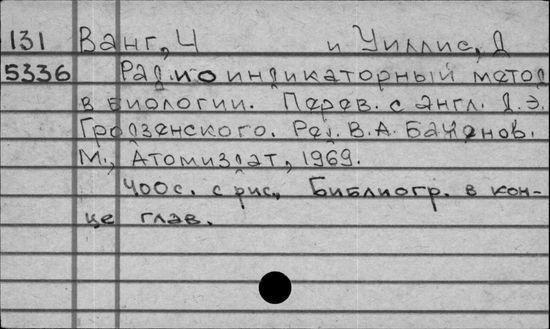 131 Ванг, Ч и Уиллис, Д
5336 Радиоиндикаторный метод
в биологии. Перев. с англ. Д.Э.
Гродзенского. Ред. В.А. Баженов.
М., Атомиздат, 1969.
400с. с рис., Библиогр. в кон-
це глав.